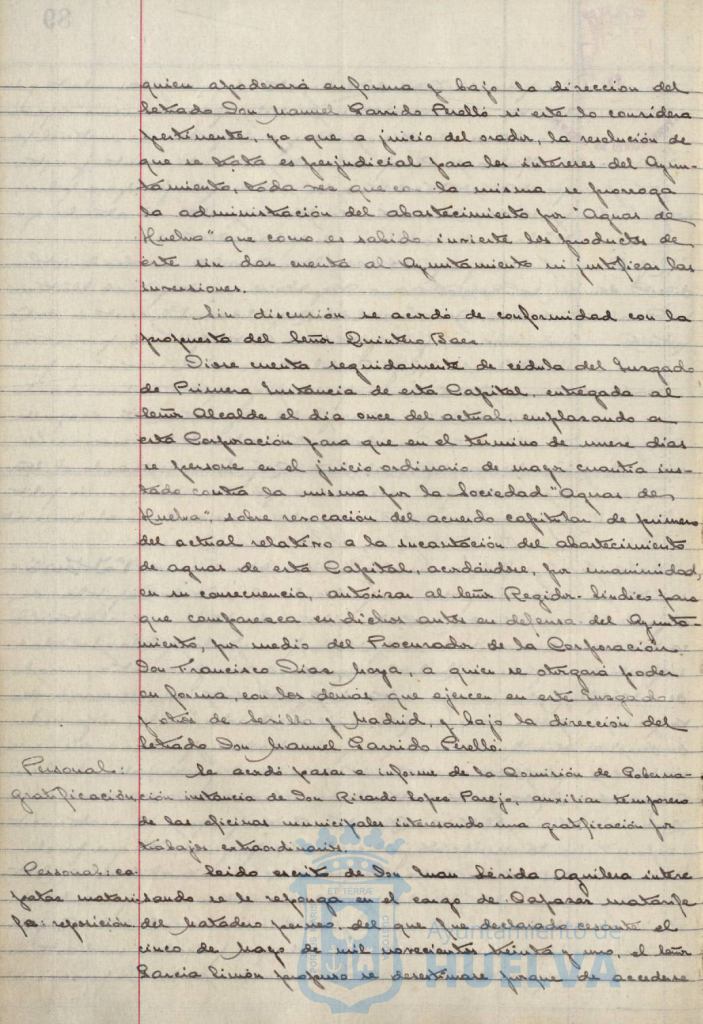 quien apoderará en forma y bajo la direccion del
letrado Don Manuel Garrido Perelló si este lo considera
pertinente, ya que a juicio del orador, la resolución de
que se trata es perjudicial para los intereses del Ayun-
tamiento, toda vez que con la misma se prorroga
la administración del abastecimiento por "Aguas de
Huelva" que como es sabido invierte los productos de
éste sin dar cuenta al Ayuntamiento ni justificar las
inversiones.
Sin discusión se acordó de conformidad con la
propuesta del Señor Quintero Baez
Diose cuenta seguidamente de cédula del Juzgado
de Primera Instancia de esta Capital, entregada al
Señor Alcalde el día once del actual, emplazando a
esta Corporación para que en el término de nueve dias
se persone en el juicio ordinario de mayor cuantía ins-
tado contra la misma por la Sociedad "Aguas de
Huelva", sobre revocación del acuerdo capitular de primero
del actual relativo a la incautación del abastecimiento
de aguas de esta Capital, acordándose, por unanimidad,
en su consecuencia, autorizar al Señor Regidor-Síndico para
que comparezca en dichos autos en defensa del Ayunta-
miento, por medio del Procurador de la Corporación
Don Francisco Díaz Moya, a quien se otorgará poder
en forma, con los demás que ejercen en este Juzgado
y otros de Sevilla y Madrid, y bajo la dirección del
letrado Don Manuel Garrido Perelló.
Personal:
gratificación
Se acordó pasar a informe de la Comisión de Goberna-
ción instancia de Don Ricardo Lopez Parejo, auxiliar temporero
de las oficinas municipales interesando una gratificación por
trabajos extraordinarios.
Personal: ca
pataz matari
fe: reposición
Leido escrito de Don Juan Lérida Aguilera intere
sando se le reponga en el cargo de Capataz matarife
del Matadero, del que fue declarado cesante el
cinco de Mayo de mil novecientos treinta y uno, el Señor
Garcia Limón propuso se desestimase porque de accederse
ET TERRÆ
Ayuntamiento de
HUELVA